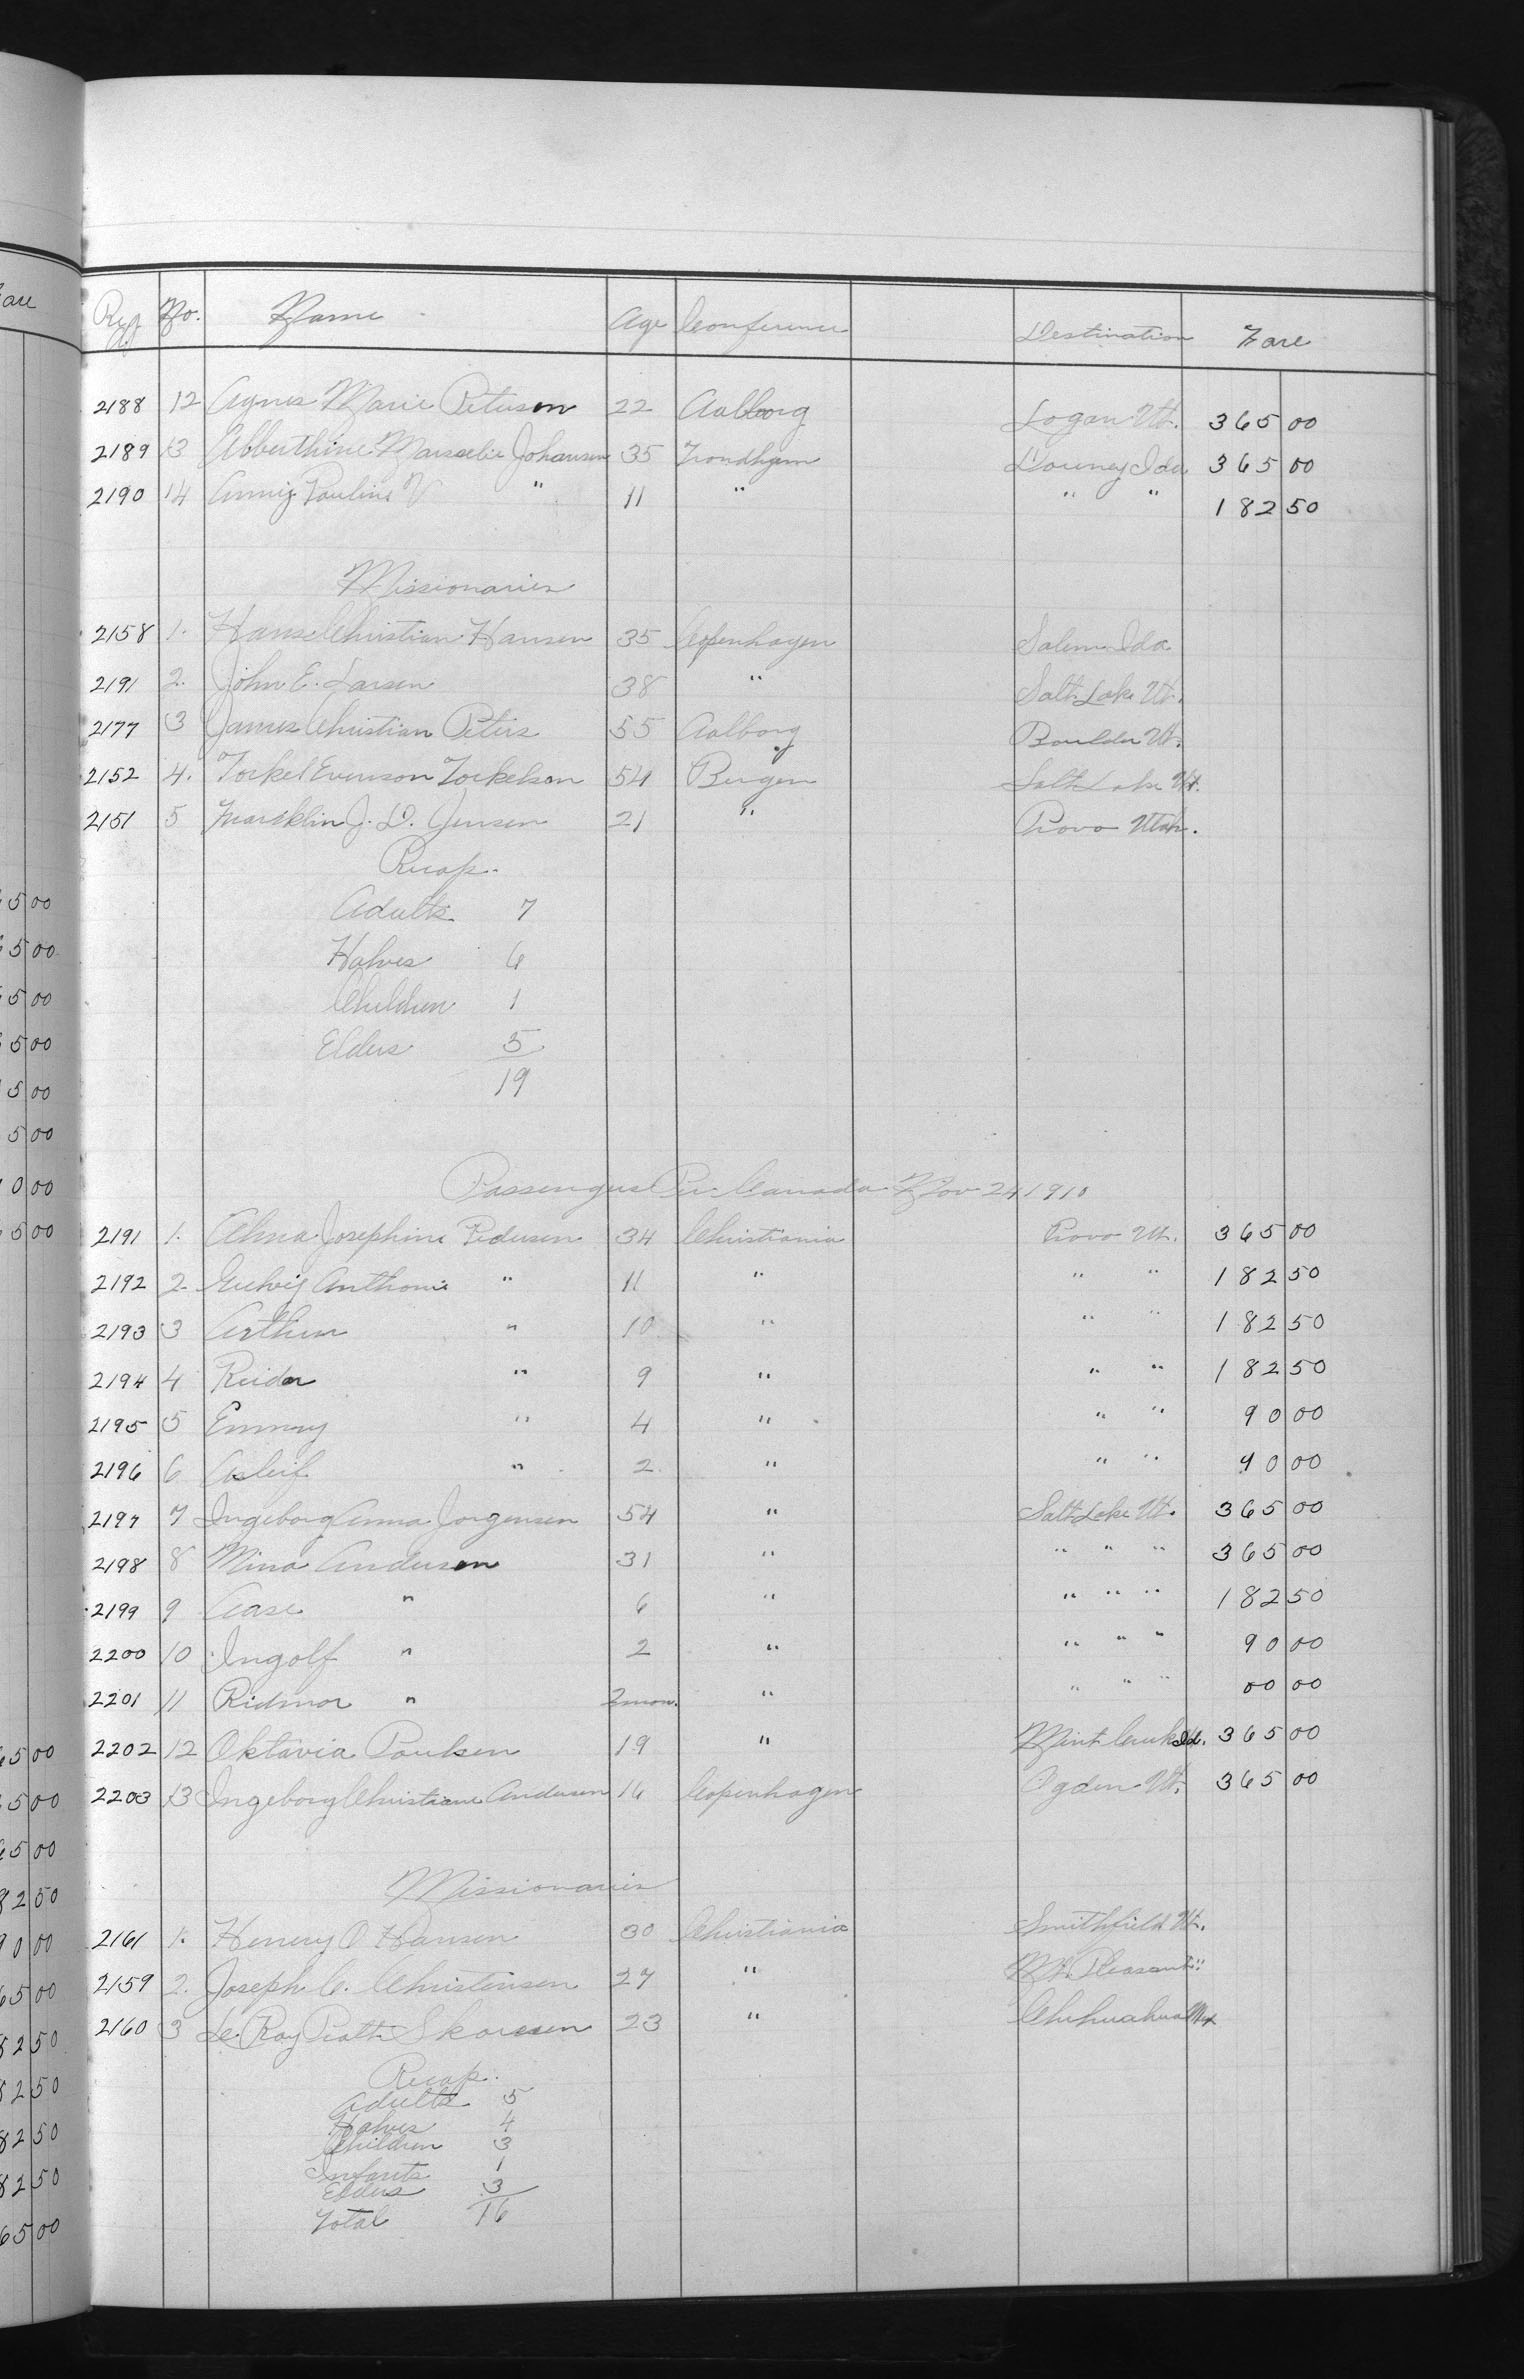 Ref No. Name Age Conference Destination Fare
2188 12 Agnes Marie Petersen 22 Aalborg Logan Ut. 365 00
2189 13 Abberthine Marselie Johansen 35 Trondhjem Downey Ida 365 00
2190 14 Annie Pauline V " 11 " " " 182 50
Missionaries
2158 1. Hans Christian Hansen 35 Copenhagen Salem Ida
2191 2. John E. Larsen 38 " Salt Lake Ut.
2177 3 James Christian Peters 55 Aalborg Boulder Ut.
2152 4. Torkel Evenson Torkelson 54 Bergen Salt Lake Ut.
2151 5 Franklin J. D. Jensen 21 " Provo Utah.
Recap.
Adults 7
Halves 6
Children 1
Elders 5
19
Passengers Per. Canada Nov 24 1910
2191 1. Alma Josephine Pedersen 34 Christiania Provo Ut. 365 00
2192 2. Anthonie " 11 " " " 182 50
2193 3 Arthur " 10 " " " 182 50
2194 4 Reidar " 9 " " " 182 50
2195 5 Emmy " 4 " " " 90 00
2196 6 Asleif " 2 " " " 90 00
2197 7 Ingeborg Anna Jorgensen 54 " Salt Lake Ut. 365 00
2198 8 Mina Andersen 31 " " " " 365 00
2199 9 Aase " 6 " " " " 182 50
2200 10 Ingolf " 2 " " " " 90 00
2201 11 Ridmor " 2 mon. " " " " 00 00
2202 12 Oktavia Poulsen 19 " Mint Creek Id. 365 00
2203 13 Ingeborg Christiane Andersen 16 Copenhagen Ogden Ut. 365 00
Missionaries
2161 1. Henery O Hansen 30 Christiania Smithfield Ut.
2159 2. Joseph C. Christensen 27 " Mt. Pleasant "
2160 3 Le Roy Pratt Skousen 23 " Chihuahua Mex
Recap.
Adults 5
Halves 4
Children 3
Infants 1
Elders 3
Total 16